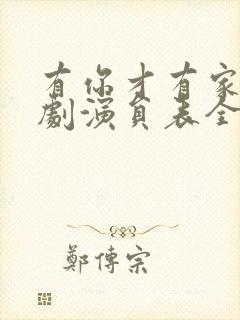 有你才有家
劇演員表全
鄭傳宗